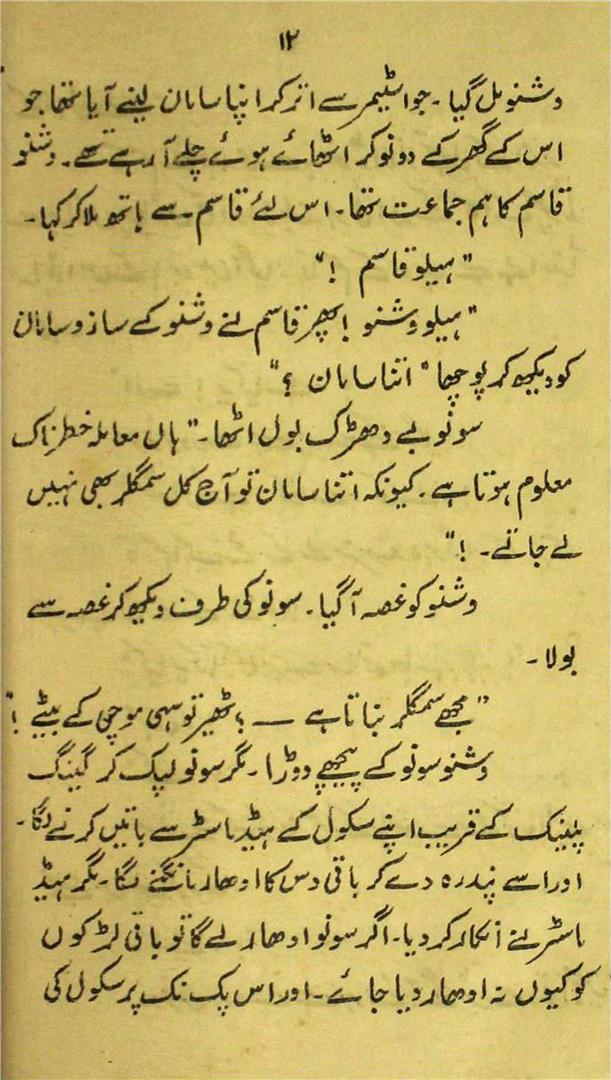 ۱۲
وشنو مل گیا۔ جو اسٹیمر سے اتر کر اپنا سامان لینے آیا تھا جو
اس کے گھر کے دو نوکر اٹھائے ہوئے چلے آ رہے تھے۔ وشنو
قاسم کا ہم جماعت تھا۔ اس لئے قاسم سے ہاتھ ملا کر کہا۔
"ہیلو قاسم !"
"ہیلو وشنو ! پھر قاسم نے وشنو کے ساز و سامان
کو دیکھ کر پوچھا "اتنا سامان ؟"
سونو بے دھڑک بول اٹھا۔ "ہاں معاملہ خطرناک
معلوم ہوتا ہے۔ کیونکہ اتنا سامان تو آج کل سمگلر بھی نہیں
لے جاتے۔ !"
وشنو کو غصہ آ گیا۔ سونو کی طرف دیکھ کر غصہ سے
بولا۔
"مجھے سمگلر بناتا ہے — ؛ ٹھیر تو سہی موچی کے بیٹے !"
وشنو سونو کے پیچھے دوڑا۔ مگر سونو لپک کر گینگ
پلینک کے قریب اپنے سکول کے ہیڈ ماسٹر سے باتیں کرنے لگا۔
اور اسے پندرہ دے کر باقی دس کا ادھار مانگنے لگا۔ مگر ہیڈ
ماسٹر نے انکار کر دیا۔ اگر سونو ادھار لے گا تو باقی لڑکوں
کو کیوں نہ ادھار دیا جائے۔ اور اس پک نک پر سکول کی